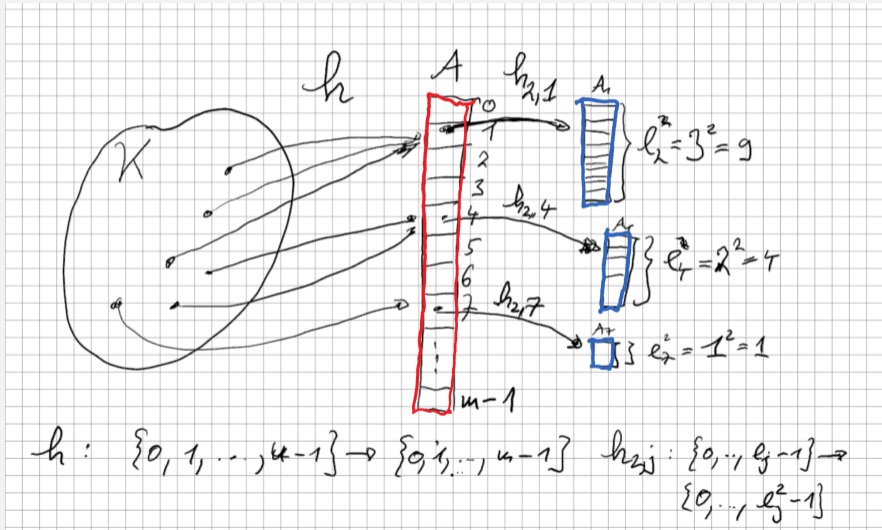 h A h₂,₁ A₁
K
0
1
2
3
4
5
6
7
m-1
l₂² = 3² = 9
h₂,₄
l₄² = 2² = 4
h₂,₇ A₇
l₇² = 1² = 1
h : {0, 1, ..., u-1} → {0, 1, .., m-1} h₂,j : {0, .., lj-1} →
{0, .., lj²-1}